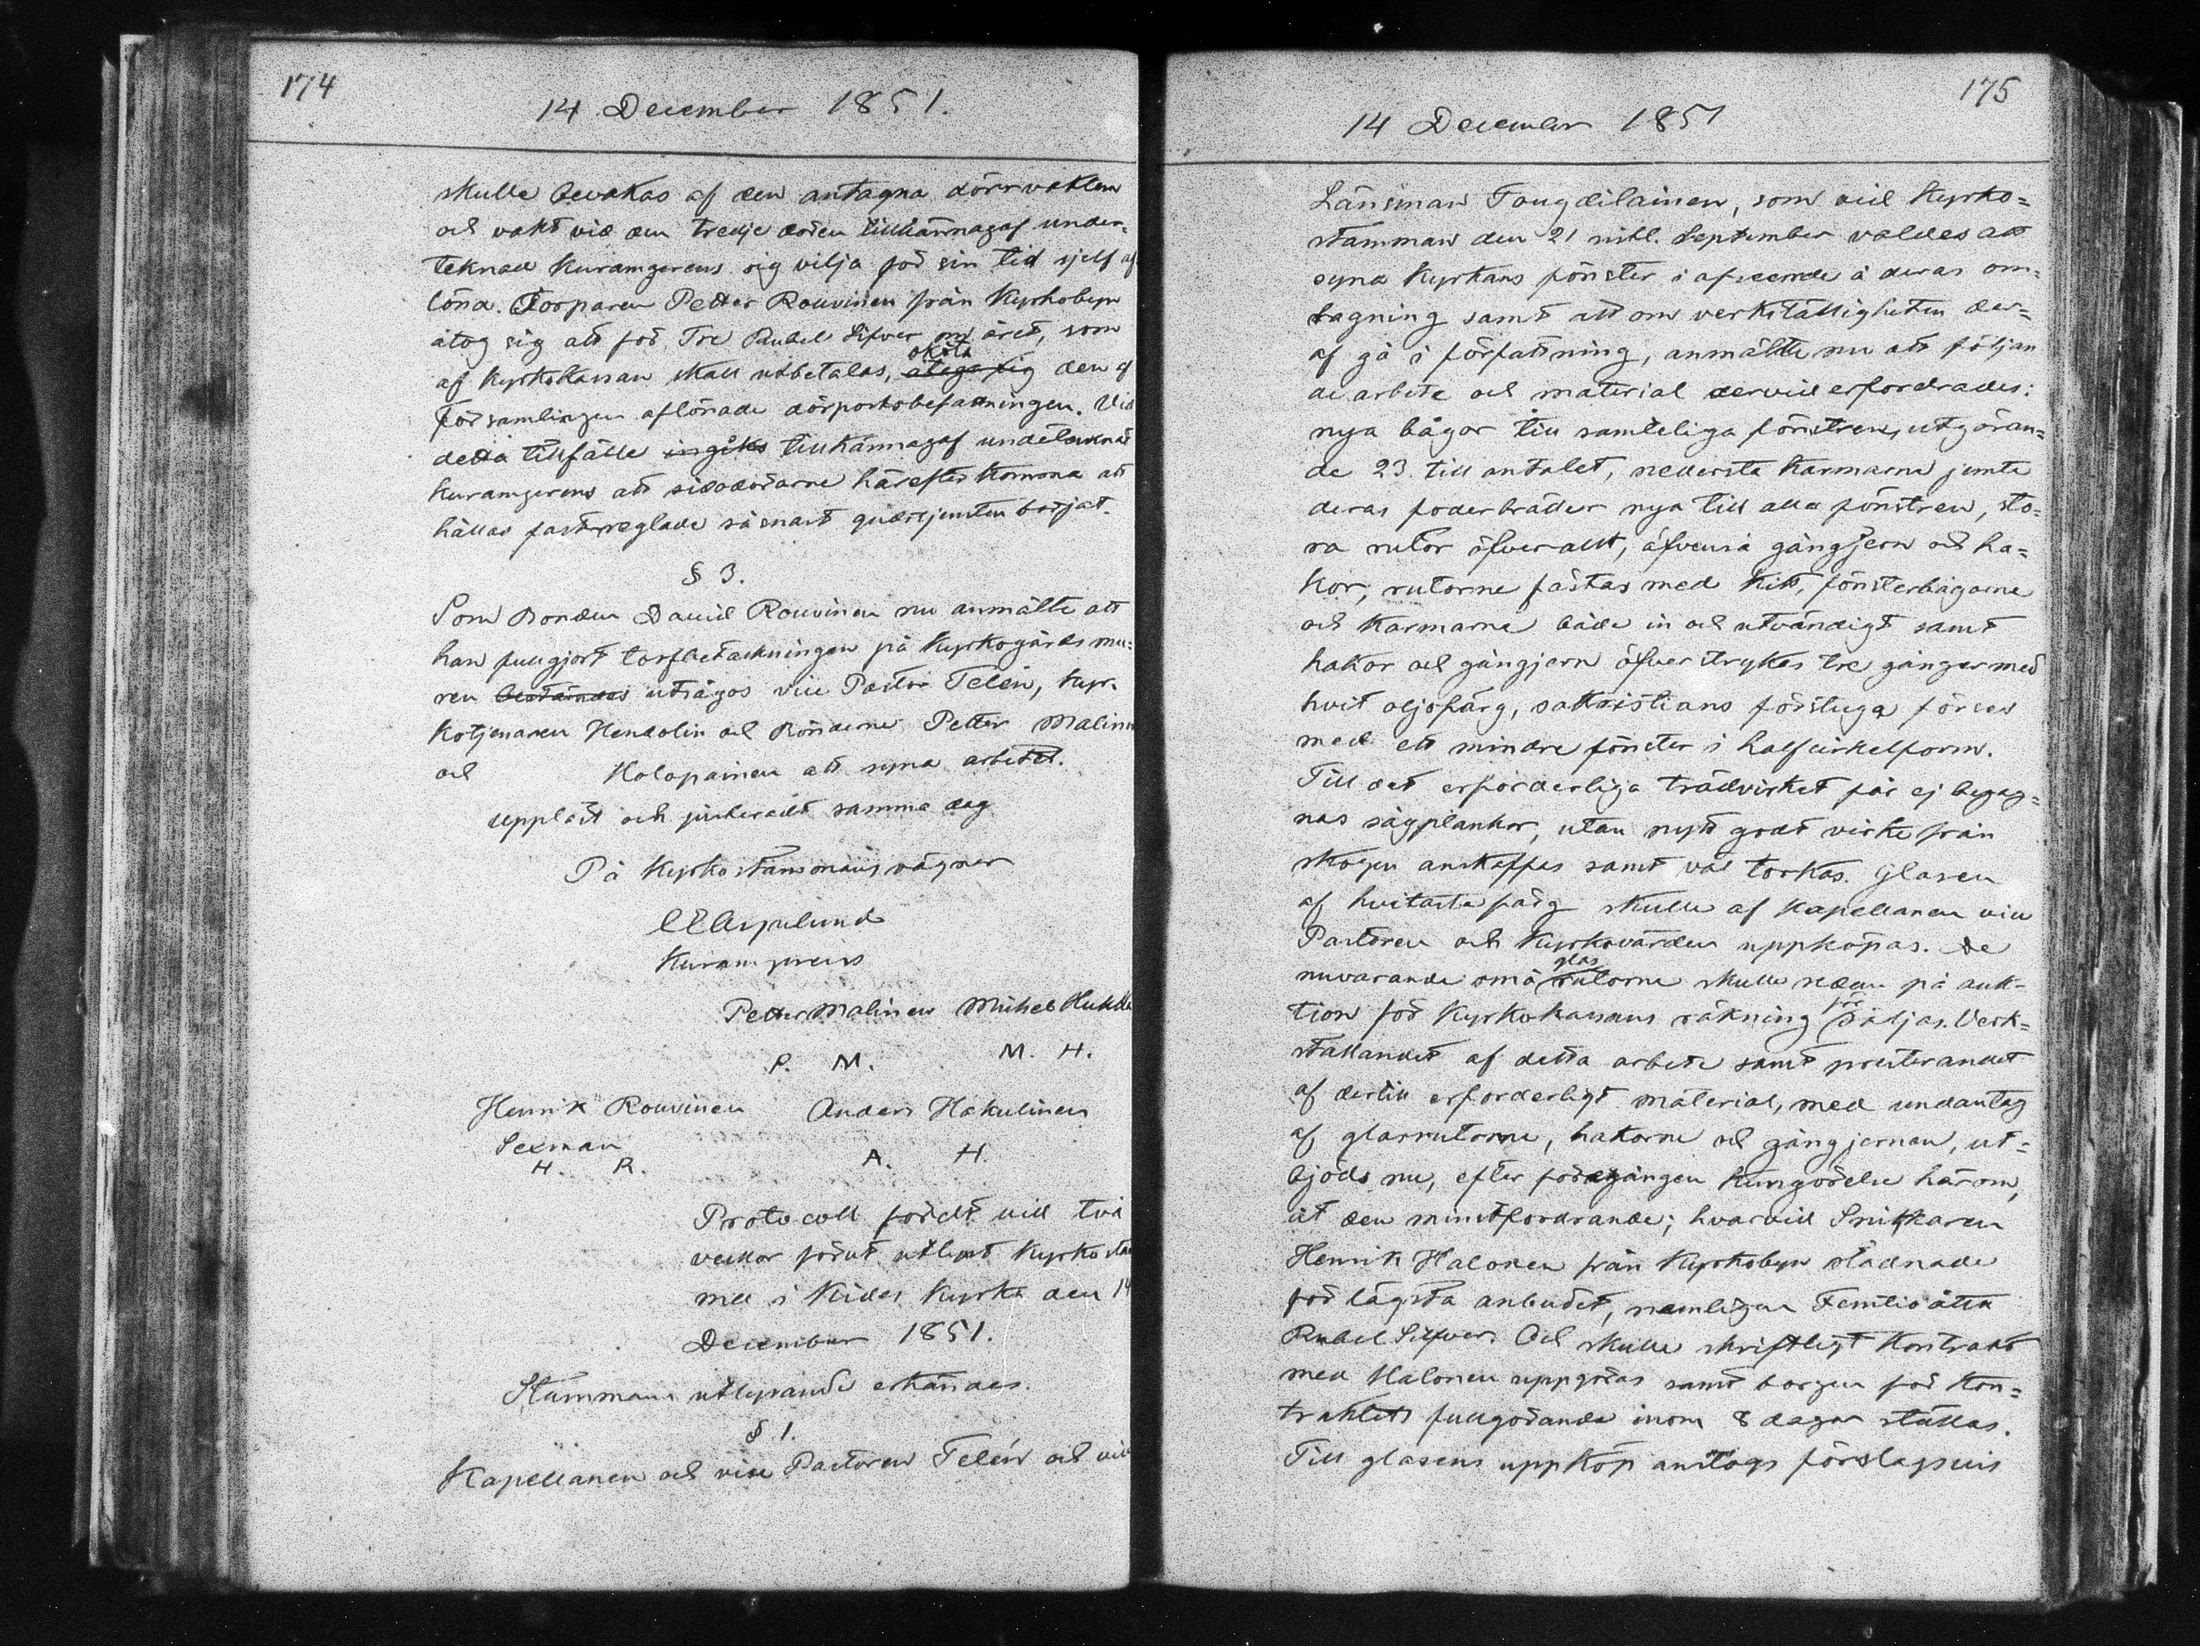 174
14 December 1851.
skulle bevakas af den antagna dörrvakten
och vakt vid den tredje dörren tillkännagaf under-
teknad Kuramgerens sig vilja för sin tid sjelf af
löna. Torparen Petter Rouvinen från Kyrkobyn
åtog sig att för Tre Rubel Silfver om året, som
af Kyrkokassan skall utbetalas, åtaga sig den af
församlingen aflönade dörportsbefattningen. Vid
detta tillfälle ingicks tillkännagaf undertecknad
Kuramgerens att sidodörarne härefter komma att
hållas fastreglade så snart gudstjensten börjat.
§ 3.
Som Bonden David Rouvinen nu anmälte att
han fullgjort torfbetäckningen på Kyrkogårds mu-
ren bestämdes utsågos vice Pastor Telén, Kyr-
kotjenaren Hendolin och Bönderne Petter Malinen
och Holopainen att syna arbetet.
Uppläst och justeradt samma dag
På Kyrkostämmans vägnar
C E Aspelund
Kuramgerens
Petter Malinen Mickel Hukka
P. M. M. H.
Henrik Rouvinen Anders Hakulinen
Sexman
H. R. A. H.
Protocoll fördt vid två
veckor förut utlyst Kyrkostäm
ma i Kides Kyrka den 14
December 1851.
Stämmans utlysande erkändes.
§ 1.
Kapellanen och vice Pastoren Telén och
175
14 December 1851
Länsman Tougdilainen, som vid Kyrko-
stämman den 21 sistl. September valdes att
syna Kyrkans fönster i afseende å deras om-
bagning samt att om verkställigheten der-
af gå i författning, anmälte nu att följan
de arbete och material dervid erfordrades:
nya bågor till samteliga fönstren, utgöran-
de 23 till antalet, nedersta karmarna jemte
deras foderbräder nya till alla fönstren, sto-
ra rutor öfverallt, äfvenså gångjern och ha-
kor, rutorne fästas med kitt, fönsterbågarne
och karmarna både in och utvändigt samt
hakor och gångjern öfverstrykes tre gånger med
hvit oljofärg, sakristians förstuga förses
med ett mindre fönster i halfcirkelform.
Till det erforderliga trädvirket får ej begag-
nas sågplankor, utan nytt godt virke från
skogen anskaffas samt väl torkas. Glasen
af hvitaste färg skulle af Kapellanen vice
Pastoren och Kyrkovärden uppköpas. De
nuvarande små glas rutorne skulle sedan på auk-
tion för Kyrkokassans räkning försäljas. Verk-
ställandet af detta arbete samt presterandet
af dertill erforderligt material, med undantag
af glasrutorne, hakorne och gångjernen, ut-
bjöds nu, efter föregången kungörelse härom,
åt den minstfordrande; hvarvid Snickaren
Henrik Halonen från Kyrkobyn stadnade
för lägsta anbudet, nemligen Femtioåtta
Rubel Silfver. Och skulle skriftligt Kontrakt
med Halonen uppgöras samt borgen för Kon-
traktets fullgörande inom 8 dagar ställas.
Till glasens uppköp anslogs förslagsvis